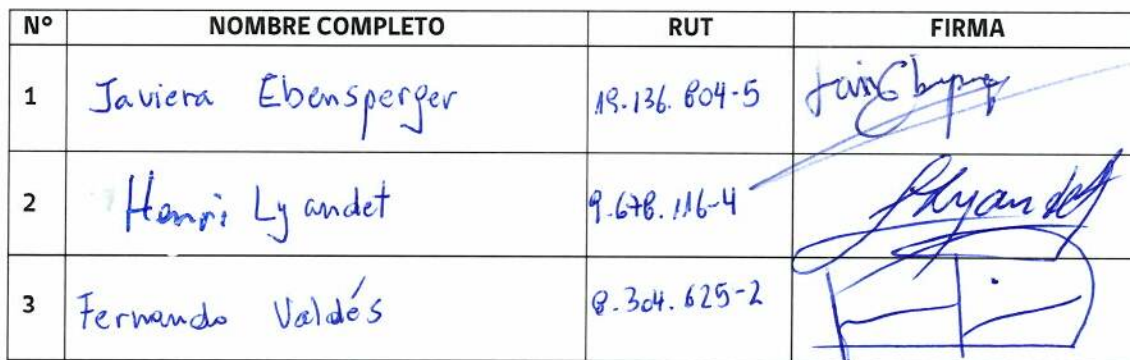 N° NOMBRE COMPLETO RUT FIRMA
1 Javiera Ebensperger 19.136.804-5
2 Henri Lyandet 9.678.116-4 Lyandet
3 Fernando Valdés 8.304.625-2